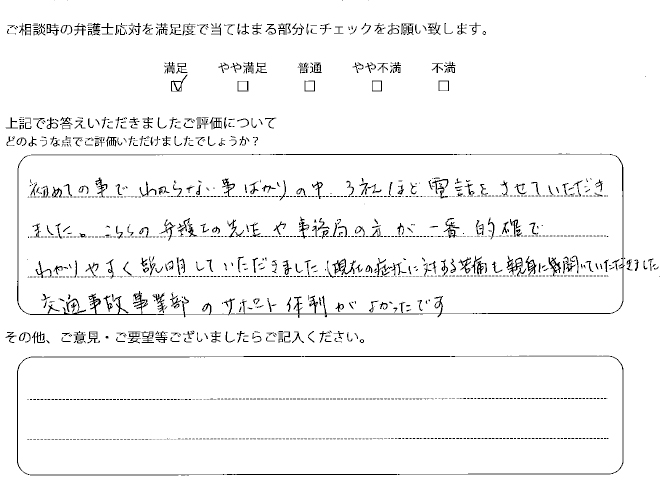 ご相談時の弁護士応対を満足度で当てはまる部分にチェックをお願い致します。
満足 やや満足 普通 やや不満 不満
上記でお答えいただきましたご評価について
どのような点でご評価いただけましたでしょうか？
初めての事でわからない事ばかりの中、3社ほど電話をさせていただき
ました。こちらの弁護士の先生や事務局の方が一番的確で
わかりやすく説明していただきました（現在の症状に対する苦痛も親身に聞いていただきました
交通事故事業部のサポート体制がよかったです
その他、ご意見・ご要望等ございましたらご記入ください。